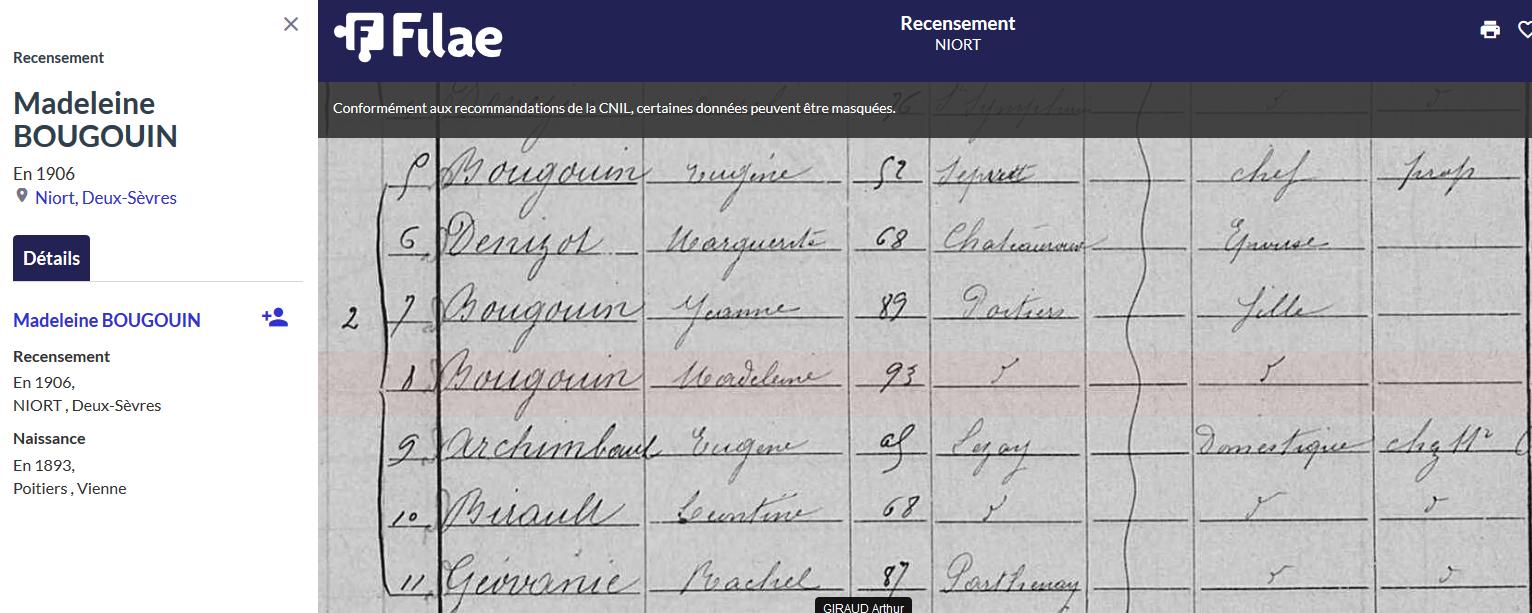 Recensement
Madeleine
BOUGOUIN
En 1906
Niort, Deux-Sèvres
Détails
Madeleine BOUGOUIN
Recensement
En 1906,
NIORT , Deux-Sèvres
Naissance
En 1893,
Poitiers , Vienne
Filae
Recensement
NIORT
Conformément aux recommandations de la CNIL, certaines données peuvent être masquées.
5 Bougouin Eugène 52 chef prop
6 Denizot Marguerite 68 Chateauroux Epouse
2
7 Bougouin Jeanne 89 Poitiers fille
8 Bougouin Madeleine 93
9 Archimbault Eugène Lezay Domestique chez Mr
10 Birault Léontine 68
11 Géovanie Rachel 87 Parthenay
GIRAUD Arthur